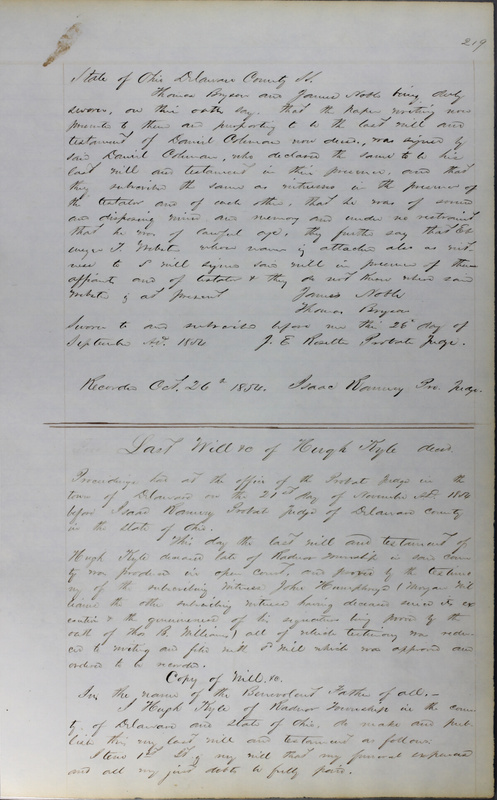 219
State of Ohio Delaware County SS.
Thomas Bryson and James Noble being duly
sworn, on their oath say, that the paper writing now
presented to them and purporting to be the last will and
testament of Daniel Coleman now decd, was signed by
said Daniel Coleman, who declared the same to be his
last will and testament in their presence, and that
they subscribed the same as witnesses in the presence of
the testator and of each other. that he was of sound
and disposing mind and memory and under no restraint
that he was of lawful age, they further say that
T. Webster whose name is attached also as wit-
ness to s will signed said will in presence of these
affiants and of testator & they do not know where said
Webster is at present
James Noble
Thomas Bryson
Sworn to and subscribed before me this 26 day of
September AD. 1854 J. E. Probate Judge.
Recorded Oct. 26th 1854. Isaac Ranney Pro. Judge.
Last Will &c of Hugh Kyle decd.
Proceedings had at the office of the Probate Judge in the
town of Delaware on the 21st day of November AD. 1854
before Isaac Ranney Probate Judge of Delaware County
in the state of Ohio.
This day the last will and testament of
Hugh Kyle deceased late of Radnor Township in said coun-
ty was produced in open court, and proven by the testimo-
ny of the subscribing witness John Humphreys (Morgan Wil-
liams the other subscribing witness having deceased since its ex-
ecution & the genuineness of his signature being proven by the
oath of Tho B. Williams) all of which testimony was redu-
ced to writing and filed with s will which was approved and
ordered to be recorded.
Copy of Will &c.
In the name of the Benevolent Father of all.-
I Hugh Kyle of Radnor Township in the coun-
ty of Delaware and state of Ohio, do make and pub-
lish this my last will and testament as follows
Item 1st It is my will that my funeral expenses
and all my just debts be fully paid.